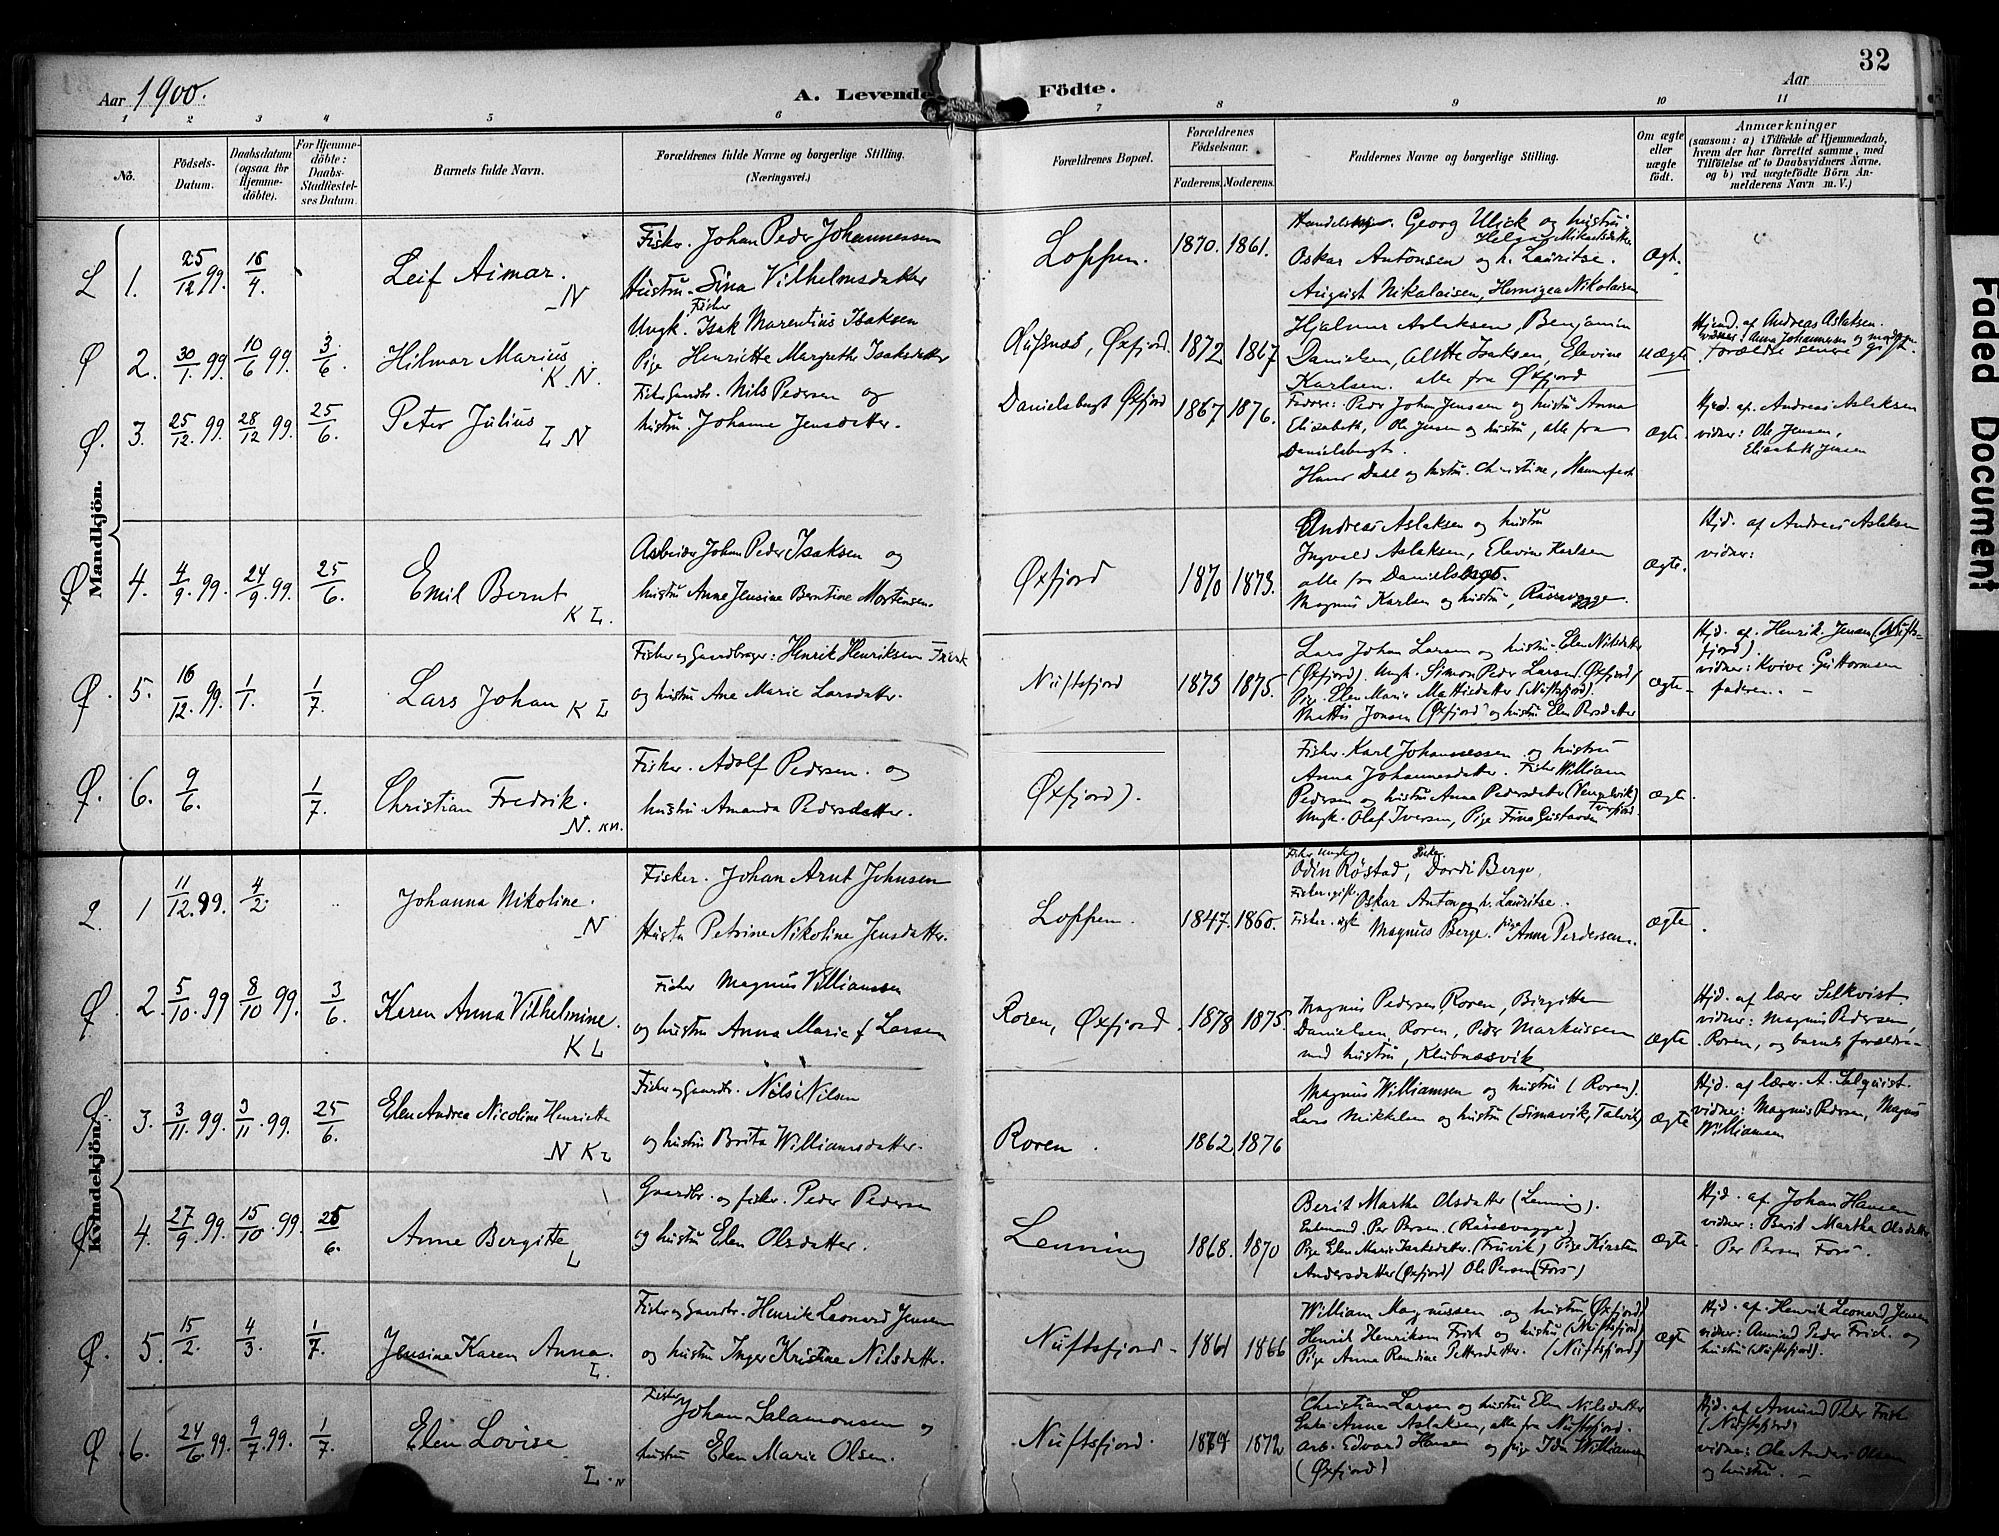 32
Aar 1900.
A. Levende Födte.
Aar
1 2 3 4 5 6 7 8 9 10 11
No.
Födsels-Datum.
Daabsdatum (ogsaa for Hjemme-döbte).
For Hjemme-döbte: Daabs-Stadfæstel-ses Datum.
Barnets fulde Navn.
Forældrenes fulde Navne og borgerlige Stilling. (Næringsvei.)
Forældrenes Bopæl.
Forældrenes Födselsaar.
Faderens. Moderens.
Faddernes Navne og borgerlige Stilling.
Om ægte eller uægte födt.
Anmærkninger
(saasom: a) i Tilfælde af Hjemmedaab, hvem der har forrettet samme, med Tilföielse af to Daabsvidners Navne. og b) ved uægtefödte Börn Anmelderens Navn m. V.)
Mandkjön.
L 1. 25/12 99. 16/4. Leif Aimar. N
Fisker. Johan Peder Johannessen
Hustru. Sina Vilhelmsdatter
Loppen. 1870. 1861.
Georg Ulick og hustru
Oskar Antonsen og h. Lauritse.
August Nikolaisen, Nikolaisen
Ægt.
Ø 2. 30/1 99. 10/6 99. 3/6. Hilmar Marius K. N.
Fisker
Ungk. Isak Marentius Isaksen
Pige Henriette Margrethe Isaksdatter
Øxfjord. 1872 1867
Hjalmar Aslaksen, Benjamin
Danielsen, Isaksen, Elevine
Karlsen. alle fra Øxfjord
uægte
Hjemd. af Andreas Aslaksen.
vidner: Anna Johannesen og
forældre senere gift.
Ø. 3. 25/12 99. 28/12 99. 25/6. Peter Julius L N
Fisker Gaardbr. Nils Pedersen og
hustru. Johanne Jensdatter.
Danielsbugt Øxfjord 1867 1876.
Faddere: Peder Johan Jenssen og hustru Anna
Elisabeth, Ole Jensen og hustru, alle fra
Danielsbugt.
Hans Dahl og hustru Christine, Hammerfest
ægte.
Hjd. af. Andreas Aslaksen
vidner: Ole Jensen,
Elisabeth Jensen
Ø 4. 4/9 99. 24/9 99. 25/6. Emil Bernt K L.
Arbeider Johan Peder Isaksen og
hustru Anne Jensine Berntine Mortensen.
Øxfjord 1870 1873.
Andreas Aslaksen og hustru
Ingvald Aslaksen, Elevine Karlsen
alle fra Danielsbugt.
Magnus Karlsen og hustru, Russevagge.
ægte.
Hjd. af Andreas Aslaksen
vidner:
Ø. 5. 16/12 99. 1/1. 1/7 Lars Johan K L
Fisker og Gaardbruger: Henrik Henriksen Frisk
og hustru Ane Marie Larsdatter.
Nuftsfjord 1873 1875.
Lars Johan Larsen og hustru Elen Nilsdatter
(Øxfjord). Ungk. Simon Peder Larsen (Øxfjord)
Pige Elen Marie Mathisdatter (Nuftsfjord).
Mathis Jonsen (Øxfjord) og hustru Elen Persdatter
ægte
Hjd. af Henrik Jensen (Nufts-
fjord).
vidner: Kvive Guttormsen
faderen.
Ø. 6. 9/6. 1/7 Christian Fredrik. N. KN.
Fisker. Adolf Pedersen. og
hustru Amanda Pedersdatter.
Øxfjord).
Fisker. Karl Johannessen og hustru
Anna Johannesdatter. Fisker William
Pedersen og hustru Anna Pedersdatter
Ungk. Olaf Iversen, Pige Fina Gustavsen
ægte.
Kvindekjön.
L. 1 11/12 99. 4/2 Johanna Nikoline. N
Fisker. Johan Arnt Johnsen
Hustru Petrine Nikoline Jensdatter.
Loppen. 1847. 1860.
Fisker Ungk
Odin Röstad, Dordi Berge.
Fisker. gift. Oskar Anton og h. Lauritse.
Fisker. ugk Magnus Berge. Pige Anna Perdersen.
ægte.
Ø. 2. 5/10 99 8/10 99. 3/6. Karen Anna Vilhelmine. K L
Fisker Magnus Villiamsen
og hustru Anna Marie f. Larsen
Roren, Øxfjord. 1878 1875.
Magnus Pedersen Roren, Birgitte
Danielsen, Roren, Peder Markussen
med hustru, Klubnæsvik
ægte
Hjd. af lærer Selkvist
vidner: Magnus Pedersen,
Roren, og barnets forældre
Ø. 3. 3/11 99. 3/11 99. 25/6. Elen Andrea Nicoline Henriette N K L
Fisker og Gaardbr. Nils Nilsen
og hustru Brita Williamsdatter.
Roren. 1862 1876
Magnus Williamsen og hustru (Roren).
Lars Mikkelsen og hustru (Simavik, Talvik)
ægte
Hjd. af lærer. A. Selqvist.
vidner: Magnus Pedersen, Magnus
Williamsen
Ø 4. 27/9 99. 15/10 99. 25/6. Anne Bergitte L
Gaardbr. og fisker. Peder Pedersen
og hustru Elen Olsdatter.
Lenning 1868. 1870
Berit Martha Olsdatter (Lenning).
Per Persen. (Russevagge)
Pige Elen Marie Isaksdatter. (Truvik) Pige Kirsten
Andersdatter (Øxfjord) Ole Persen (Fors)
ægte.
Hjd. af. Johan Hansen
vidner: Berit Martha Olsdatter
Per Persen Fors.
Ø. 5. 15/2. 4/3. 1/7. Jensine Karen Anna. L.
Fisker og Gaardbr. Henrik Leonard Jensen
og hustru Inger Kristine Nilsdatter.
Nuftsfjord 1861 1866
William Magnussen og hustru (Øxfjord)
Henrik Henriksen Frisk og hustru (Nuftsfjord)
Pige Anna Randine Pettersdatter. (Nuftsfjord)
ægte
Hjd. af Henrik Leonard Jensen
vidner: Amund Peder Frisk. og
hustru (Nuftsfjord).
Ø. 6. 24/6 99. 9/7 99. 1/7 Elen Lovise L. N
Fisker Johan Salamonsen og
hustru Elen Marie Olsen.
Nuftsfjord. 1874 1872
Christian Larsen og hustru Elen Nilsdatter
Enke Anne Aslaksen, alle fra Nuftsfjord.
Arb. Edvard Hansen og pige Ida Williamsen
(Øxfjord)
Hjd. af Amund Peder Frisk
(Nuftsfjord)
vidner: Ole Anders Olsen
og hustru.
Faded Document